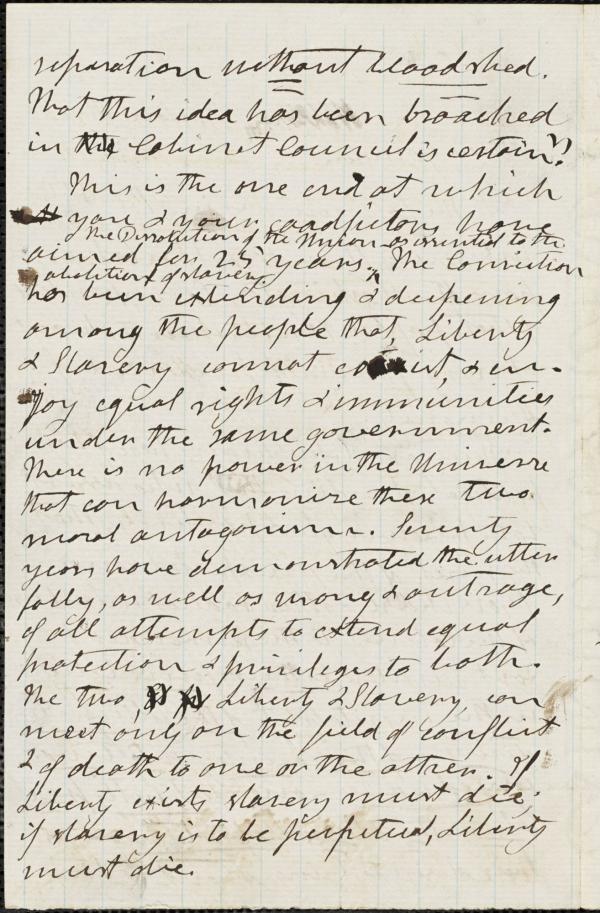 separation without bloodshed.
That this idea has been broached
in the Cabinet Council is certain"?
This is the one end at which
you & your coadjutors have
The Dissolution of the Union as essential to the
aimed for 25 years. ^ The Conviction
abolition of slavery
has been extending & deepening
among the people that, Liberty
& Slavery cannot coexist, & en-
joy equal rights & immunities
under the same government.
There is no power in the Universe
that can harmonize these two
moral antagonisms. Seventy
years have demonstrated the utter
folly, as well as wrong & outrage,
of all attempts to extend equal
protection & privileges to both.
The two, Liberty & Slavery, can
meet only on the field of conflict
& of death to one or the other. If
Liberty exists slavery must die;
if slavery is to be perpetual, Liberty
must die.